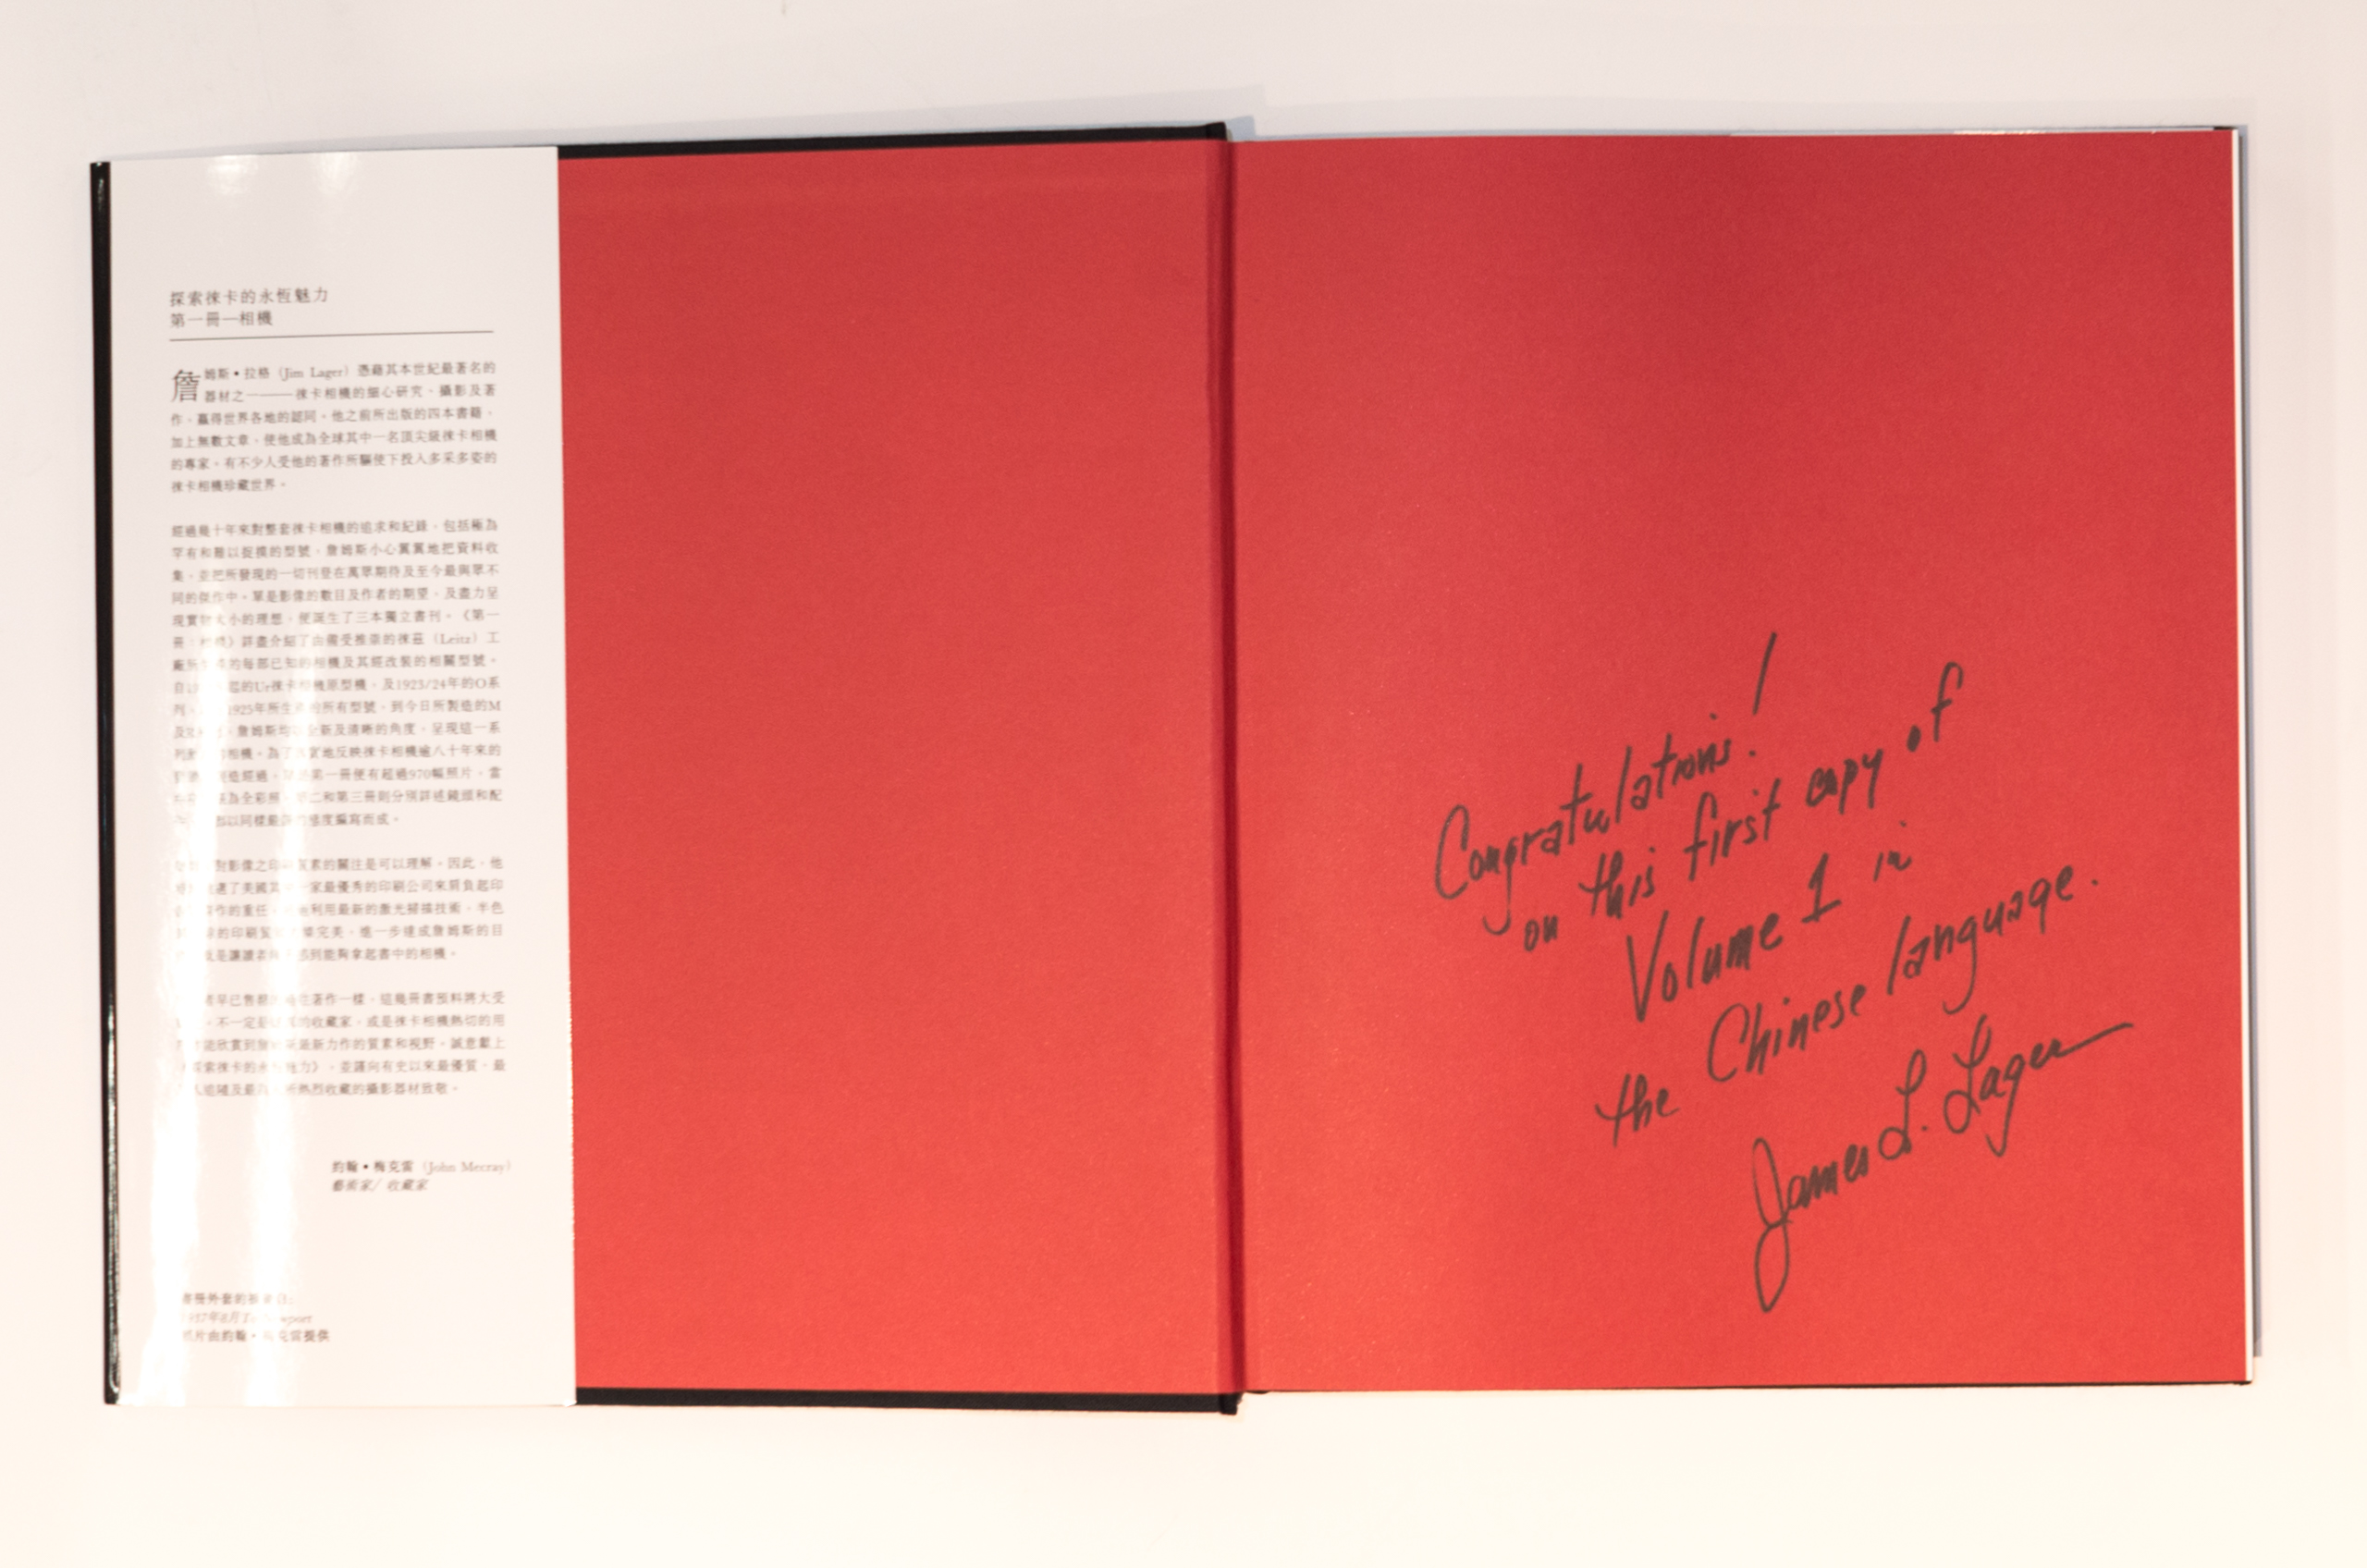 探索徠卡的永恆魅力
第一冊—相機
詹姆斯•拉格 (Jim Lager) 憑藉其本世紀最著名的
器材之一——徠卡相機的細心研究、攝影及著
作，贏得世界各地的認同。他之前所出版的四本書籍，
加上無數文章，使他成為全球其中一名頂尖級徠卡相機
的專家。有不少人受他的著作所驅使下投入多采多姿的
徠卡相機珍藏世界。
經過幾十年來對整套徠卡相機的追求和紀錄，包括極為
罕有和難以捉摸的型號，詹姆斯小心翼翼地把資料收
集，並把所發現的一切刊登在萬眾期待及至今最與眾不
同的傑作中。單是影像的數目及作者的期望，及盡力呈
現實物大小的理想，便誕生了三本獨立書刊。《第一
冊：相機》詳盡介紹了由備受推崇的徠茲 (Leitz) 工
廠所 的每部已知的相機及其經改裝的相關型號。
的Ur徠卡相機原型機，及1923/24年的O系
列， 1925年所生產的所有型號，到今日所製造的M
及 ，詹姆斯均以全新及清晰的角度，呈現這一系
列 相機。為了 地反映徠卡相機逾八十年來的
造經過， 第一冊便有超過970幅照片，當
為全彩照。第二和第三冊則分別詳述鏡頭和配
都以同樣嚴 態度編寫而成。
對影像之印刷質素的關注是可以理解。因此，他
選了美國其中一家最優秀的印刷公司來肩負起印
作的重任， 利用最新的激光掃描技術，半色
的印刷 完美，進一步達成詹姆斯的目
是讓讀者 感到能夠拿起書中的相機。
早已售 著作一樣，這幾冊書預料將大受
，不一定 的收藏家，或是徠卡相機熱切的用
能欣賞到詹姆斯最新力作的質素和視野。誠意獻上
《探索徠卡的永恆魅力》，並謹向有史以來最優質、最
人追隨及最為 所熱烈收藏的攝影器材致敬。
約翰•梅克雷 (John Mecray)
藝術家/ 收藏家
書冊外套的
年8月
照片由約翰•梅克雷提供
Congratulations!
on this first copy of
Volume 1 in
the Chinese language.
James L. Lager